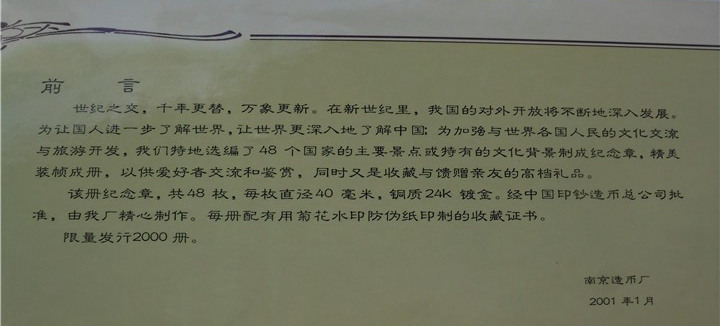 前 言
世纪之交，千年更替，万象更新。在新世纪里，我国的对外开放将不断地深入发展。
为让国人进一步了解世界，让世界更深入地了解中国；为加强与世界各国人民的文化交流
与旅游开发，我们特地选编了48 个国家的主要景点或特有的文化背景制成纪念章，精美
装帧成册，以供爱好者交流和鉴赏，同时又是收藏与馈赠亲友的高档礼品。
该册纪念章，共48 枚，每枚直径40 毫米，铜质24k 镀金。经中国印钞造币总公司批
准，由我厂精心制作。每册配有用菊花水印防伪纸印制的收藏证书。
限量发行2000 册。
南京造币厂
2001 年1月